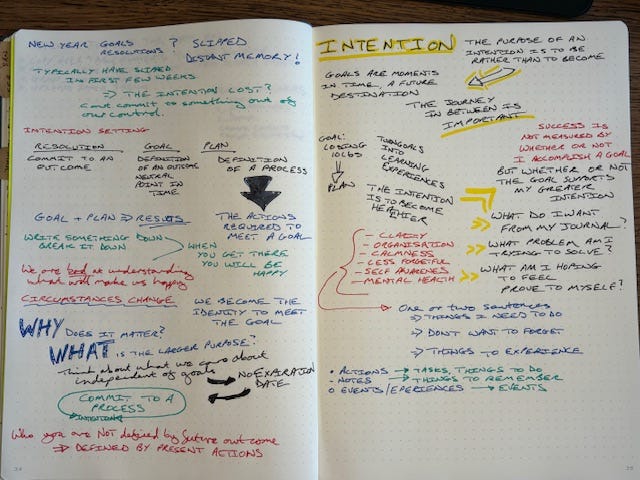 NEW YEAR GOALS ? SLIPPED
RESOLUTIONS : DISTANT MEMORY!
TYPICALLY HAVE SLIPPED
IN FIRST FEW WEEKS
⇒ THE INTENTION LOST?
Cant commit to something out of
our control.
INTENTION SETTING
RESOLUTION GOAL PLAN
COMMIT TO AN
OUTCOME
DEFINITION
OF AN OUTCOME
NEUTRAL
POINT IN
TIME
DEFINITION
OF A PROCESS
GOAL + PLAN ⇒ RESULTS
THE ACTIONS
REQUIRED TO
MEET A GOAL
WRITE SOMETHING DOWN
BREAK IT DOWN
WHEN
YOU GET THERE
YOU WILL BE
HAPPY
We are bad at understanding
what will make us happy
CIRCUMSTANCES CHANGE
WE BECOME THE
IDENTITY TO MEET
THE GOAL
WHY DOES IT MATTER?
WHAT IS THE LARGER PURPOSE?
Think about what we care about
independent of goals
NO EXPIRATION
DATE
COMMIT TO A
PROCESS
INTENTION
Who you are NOT defined by future outcome
⇒ DEFINED BY PRESENT ACTIONS
34
INTENTION
THE PURPOSE OF AN
INTENTION IS TO BE
RATHER THAN TO BECOME
GOALS ARE MOMENTS
IN TIME, A FUTURE
DESTINATION
THE JOURNEY
IN BETWEEN IS
IMPORTANT
SUCCESS IS
NOT MEASURED BY
WHETHER OR NOT
I ACCOMPLISH A GOAL
BUT WHETHER OR NOT
THE GOAL SUPPORTS
MY GREATER
INTENTION
GOAL:
LOSING
10LBS
PLAN
TURN GOALS
INTO
LEARNING
EXPERIENCES
THE INTENTION
IS TO BECOME
HEALTHIER
WHAT DO I WANT
FROM MY JOURNAL?
WHAT PROBLEM AM I
TRYING TO SOLVE?
WHAT AM I HOPING
TO FEEL
PROVE TO MYSELF?
- CLARITY
- ORGANISATION
- CALMNESS
- LESS FORGETFUL
- SELF AWARENESS
- MENTAL HEALTH
One or two sentences
⇒ THINGS I NEED TO DO
⇒ DON'T WANT TO FORGET
⇒ THINGS TO EXPERIENCE
• ACTIONS → TASKS, THINGS TO DO
- NOTES → THINGS TO REMEMBER
○ EVENTS/EPERIENCES → EVENTS
35